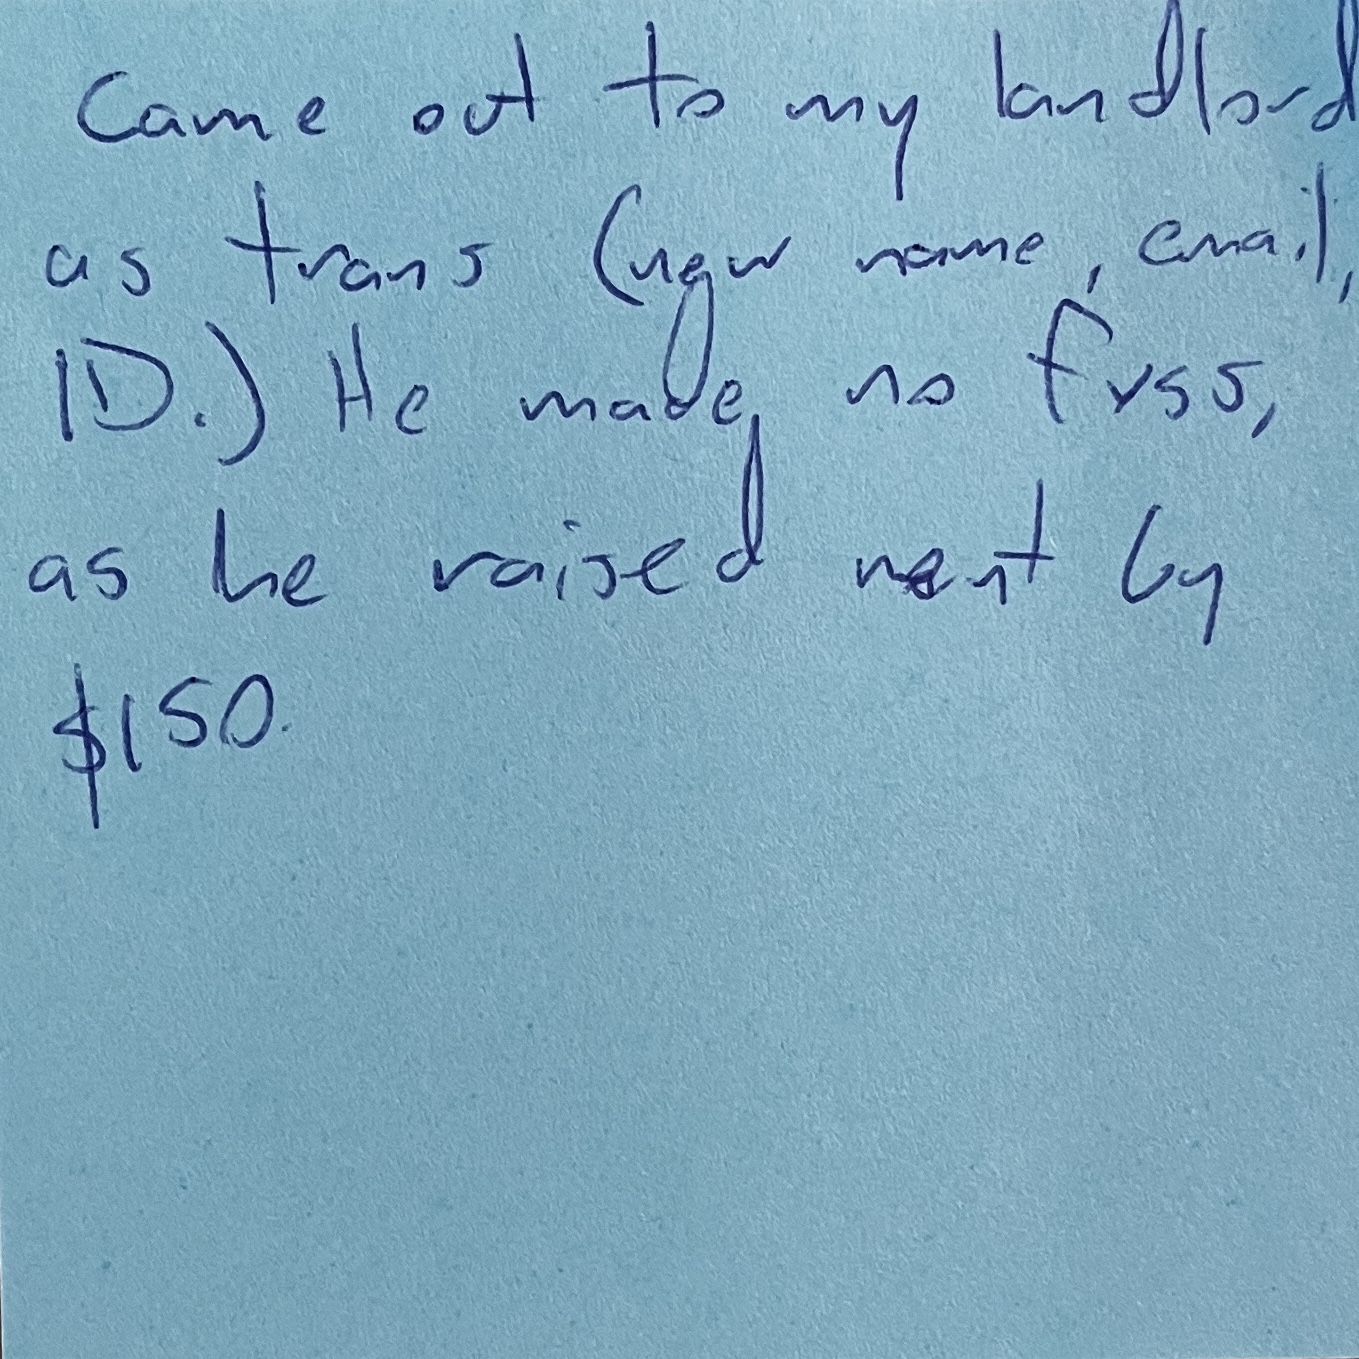 Came out to my landlord
as trans (new name, email,
ID.) He made no fuss,
as he raised rent by
$150.